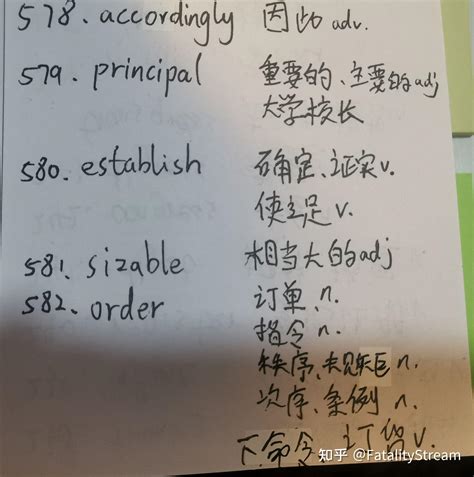 578. accordingly 因此 adv.
579. principal 重要的、主要的adj
大学校长
580. establish 确定、证实v.
使立足 v.
581. sizable 相当大的adj
582. order 订单 n.
指令 n.
秩序、规矩 n.
次序、条例 n.
下命令、订货v.
知乎 @FatalityStream